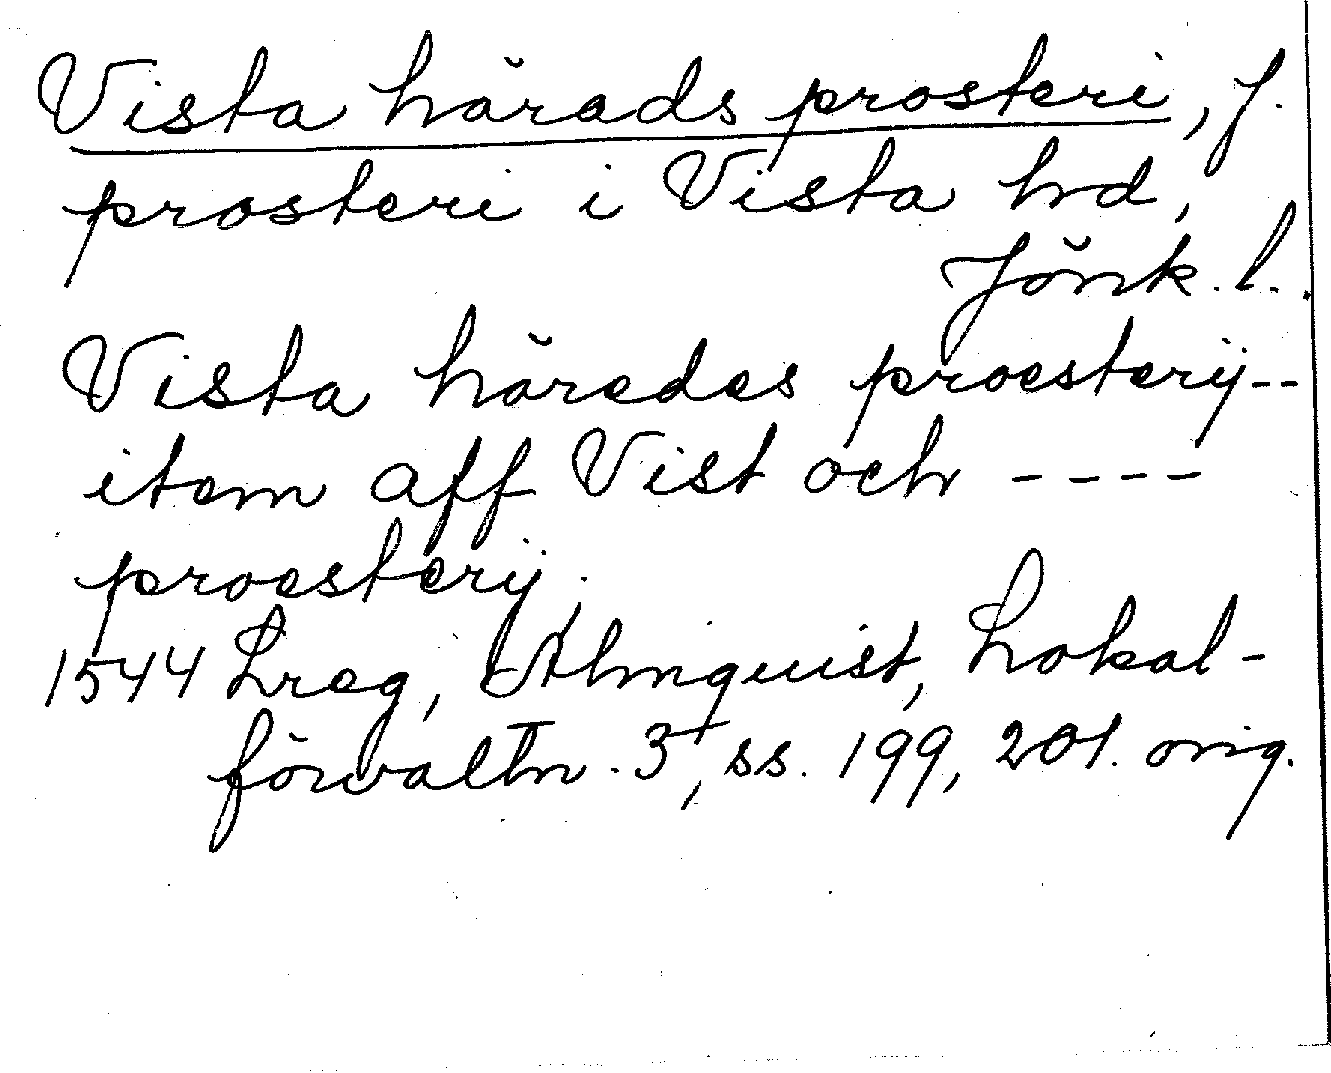 Vista härads prosteri, f.
prosteri i Vista hrd,
Jönk. l.
Vista häredes proesterij--
item aff Vist och ----
proesterij.
1544 Lreg, Almquist, Lokal-
förvaltn. 3, ss. 199, 201. orig.